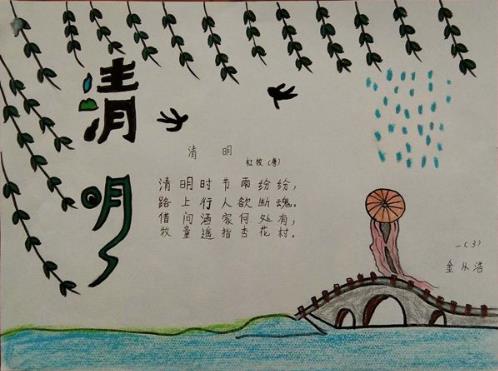 清明
清 明
杜牧（唐）
清明时节雨纷纷，
路上行人欲断魂。
借问酒家何处有，
牧童遥指杏花村。
一（3）
金从浩